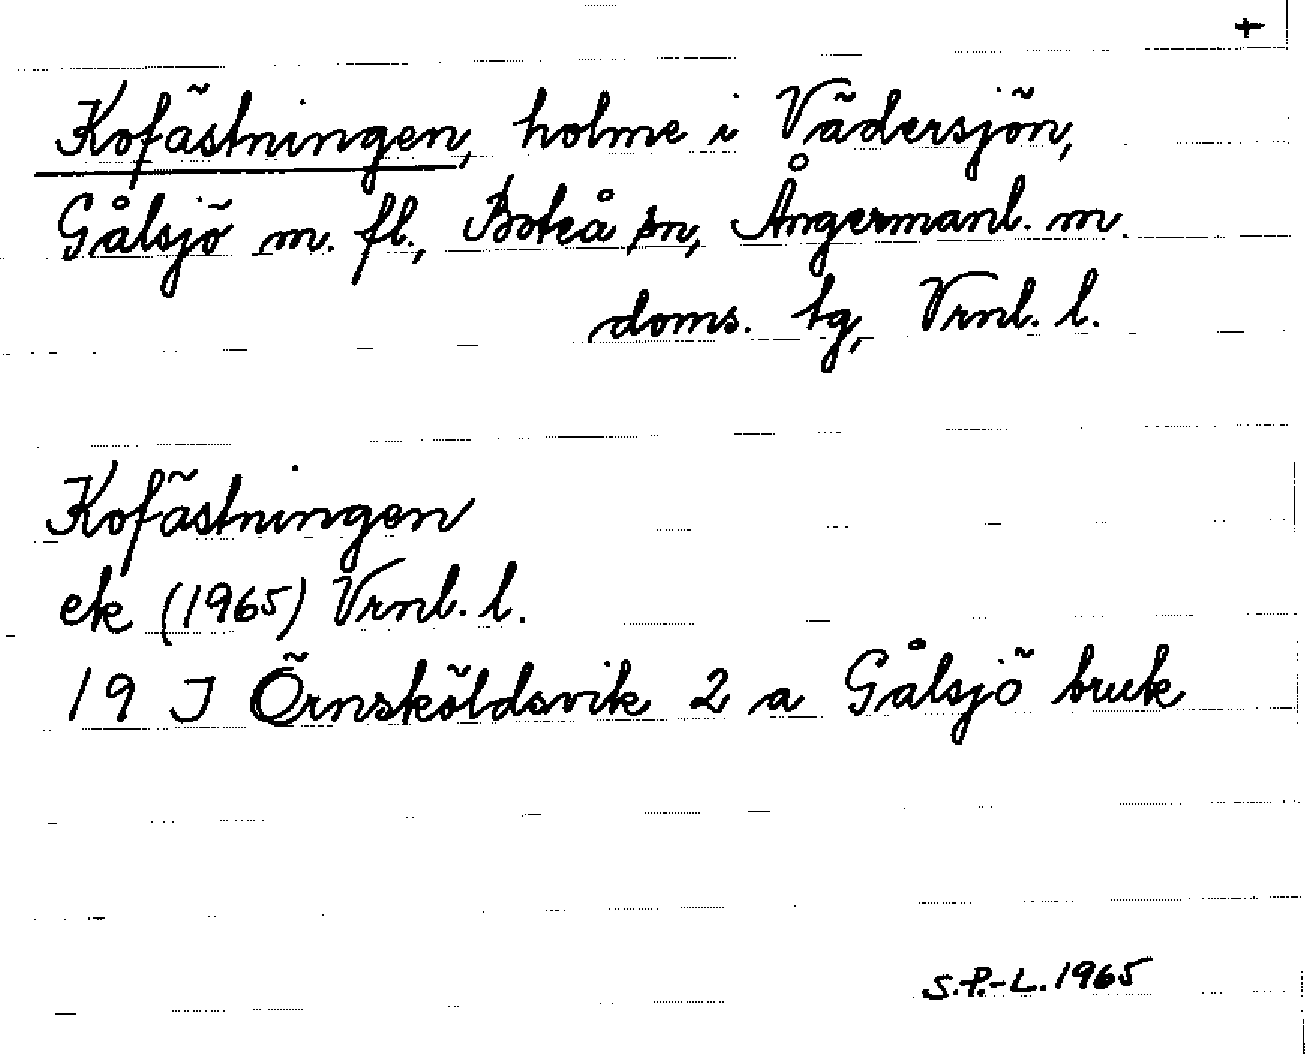 +
Kofästningen, holme i Vädersjön,
Gålsjö m. fl., Boteå sn, Ångermanl. m.
doms. tg, Vrnl. l.
Kofästningen
ek (1965) Vrnl. l.
19 J Örnsköldsvik 2 a Gålsjö bruk
S.P.-L. 1965